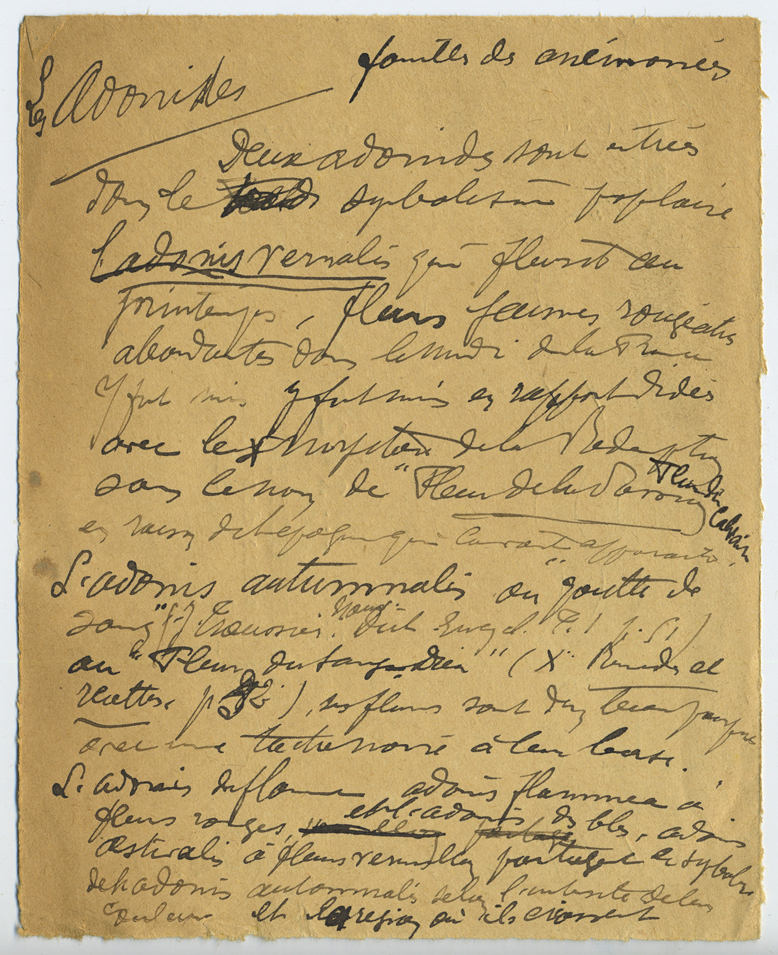 Les Adonides
familles des anémonées
Deux adonides sont entrées
dans le symbolisme populaire
L'adonis vernalis qui fleurit au
printemps, fleurs jaunes
abondantes dans le midi de la France
Y fut mis y fut mis en rapport d'idées
avec le mystère de la Rédemption
sous le nom de "Fleur de la Passion
Fleur du Calvaire
en raison de l'époque qui
L'adonis autumnalis ou "goutte de
sang" (Dict. T. I p.
ou "Fleur du sang-Dieu" (X. Remèdes et
recettes, p ), ses fleurs sont d'un beau pourpre
avec une tache noire à leur base.
L'adonis de flamme adonis flammea à
fleurs rouges, et l'adonis des blés, adonis
aestivalis à fleurs vermeilles partagent le symbole
de l'adonis autumnalis selon l'intensité de leur
couleur et la région où ils croissent